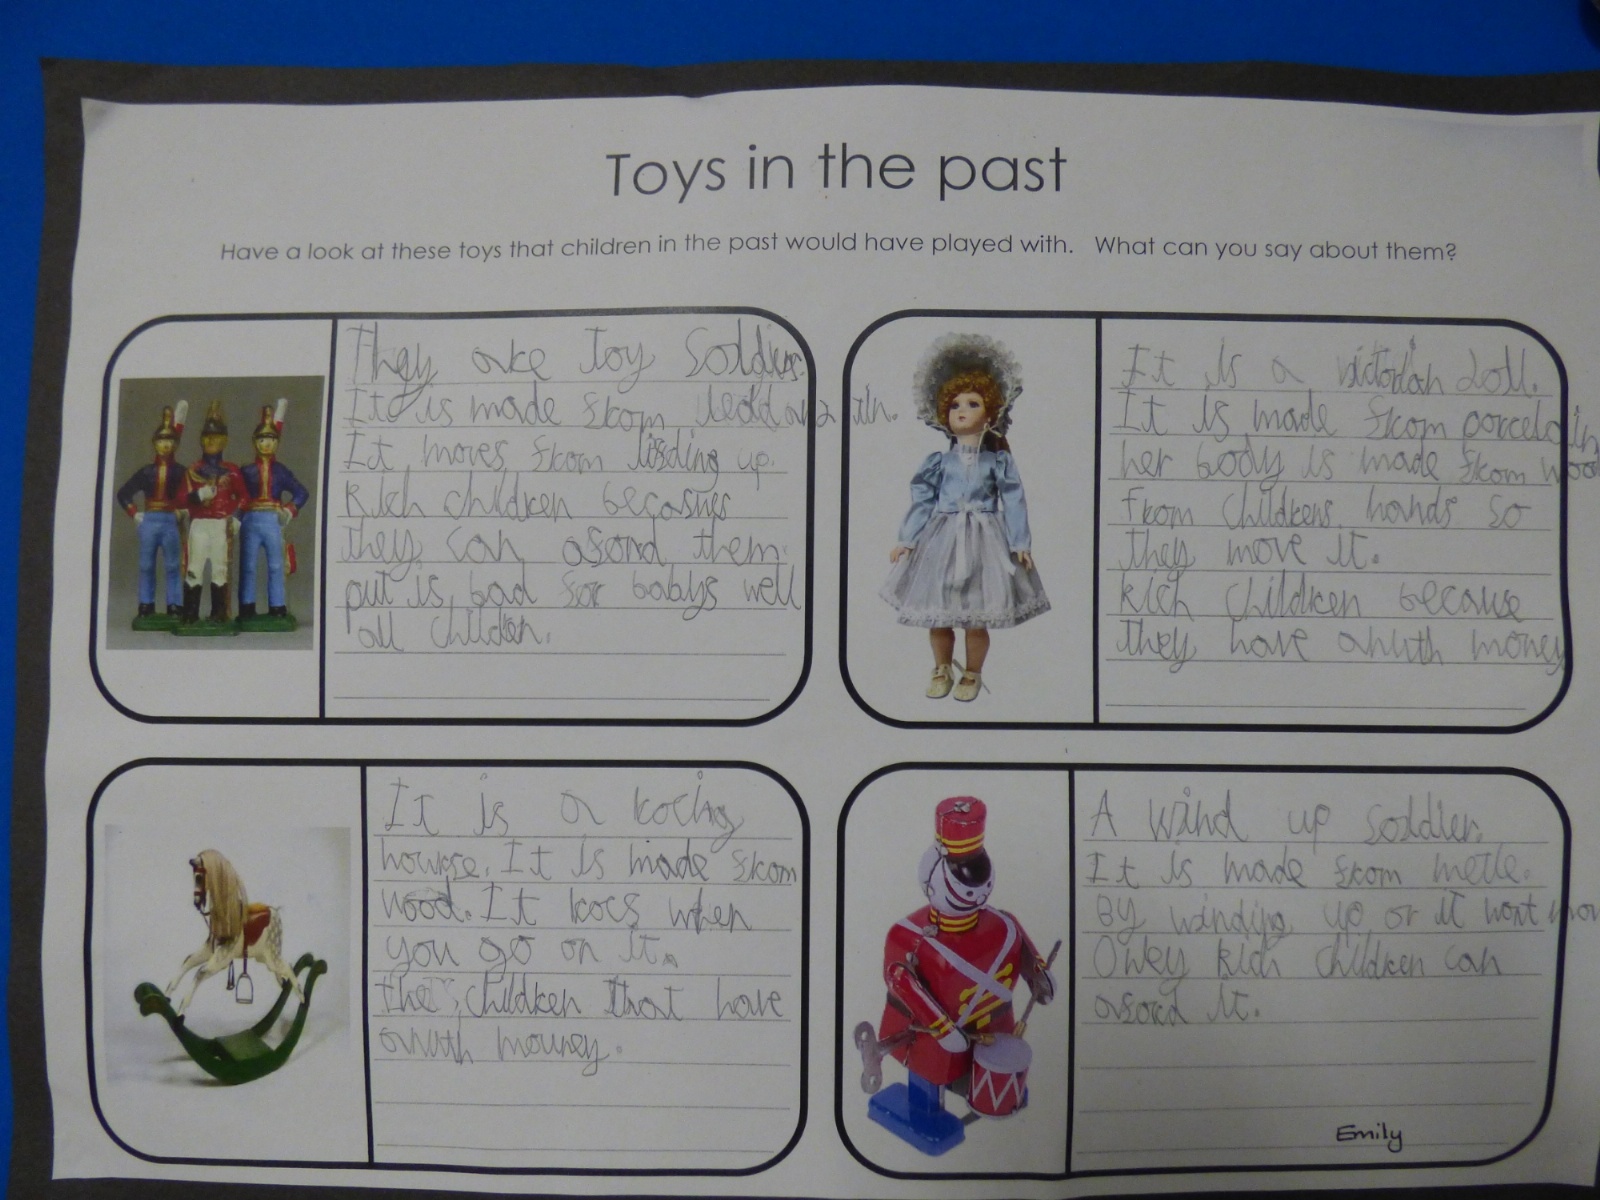 Toys in the past
Have a look at these toys that children in the past would have played with. What can you say about them?
They are Toy Soldiers.
It is made from lead and tin.
It moves from up.
Rich children
they can aford them.
put is bad for babys well
all children.
It is a victorian doll.
It is made from porcelain,
her body is made from wood
From childrens hands so
they move it.
Rich children because
they have anuth money
It is a rocing
hourse. It is made from
wood. It rocs when
you go on it.
the children that have
anuth mouney.
A wind up soldier.
It is made from metle.
By winding up or it wont mov
Owley rich children can
aford it.
Emily